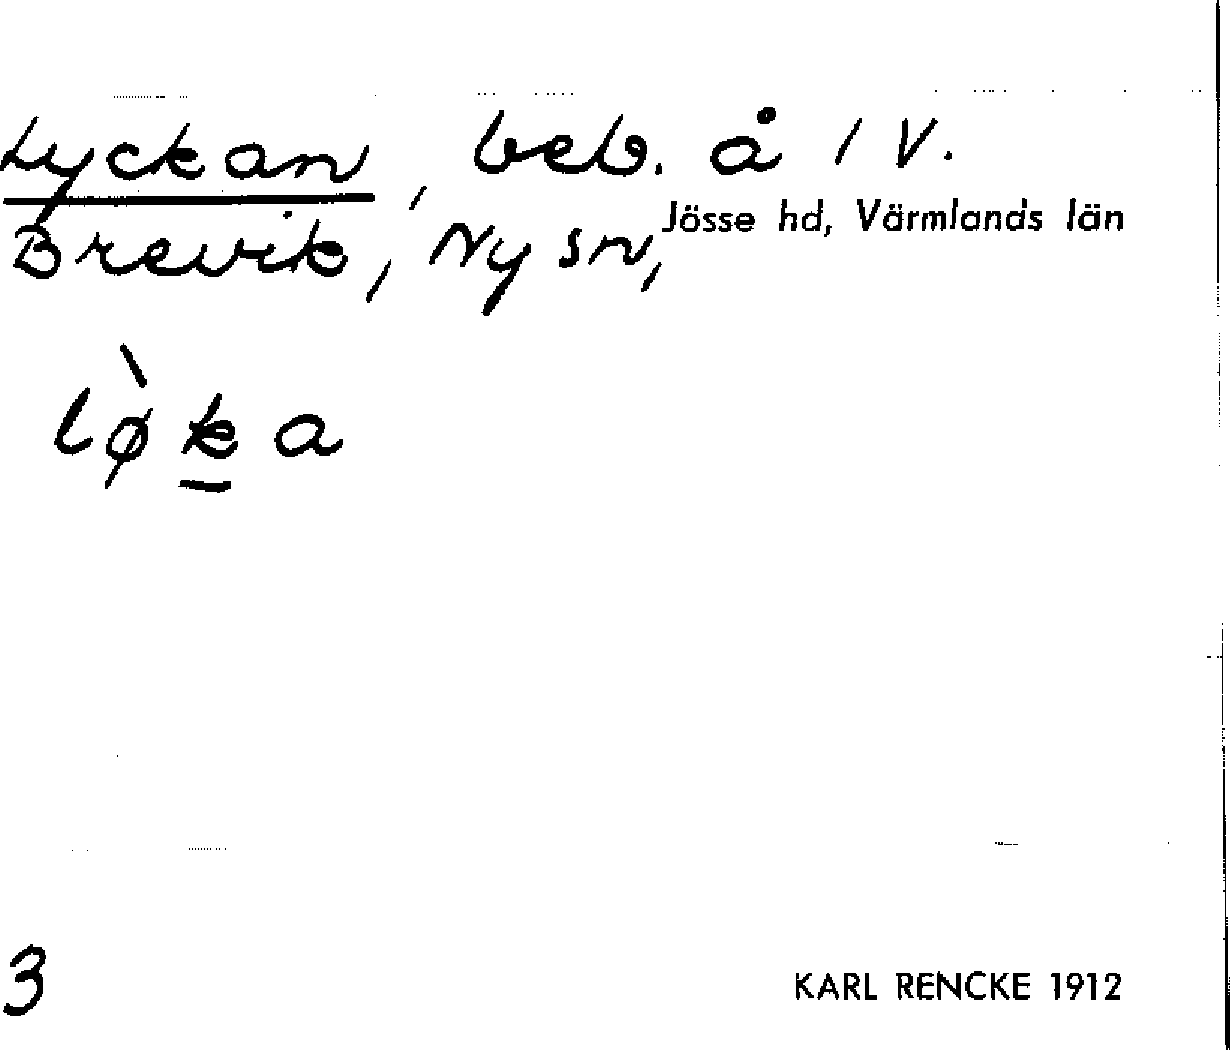 Lyckan, beb. å 1 V.
Brevik, Ny sn, Jösse hd, Värmlands län
lø̀ka
3
KARL RENCKE 1912